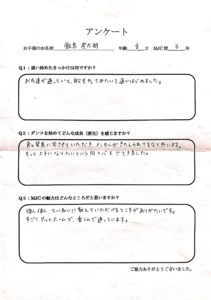 アンケート
お子様のお名前 飯島 年齢 8 才 MJC歴 3 年
Q1：通い始めたきっかけは何ですか？
お友達が通っていて、私もやってみたいと通いはじめました。
Q2：ダンスを始めてどんな成長（変化）を感じますか？
発表会に出させていただき、メンタルがきたえられてるなと思います。
もっと上手になりたいという向上心もでてきました。
Q3：MJCの魅力はどんなところだと思いますか？
優しく、ていねいに教えていただけるところがありがたいです。
すごくアットホームで、楽しんで通っています。
ご協力ありがとうございました。